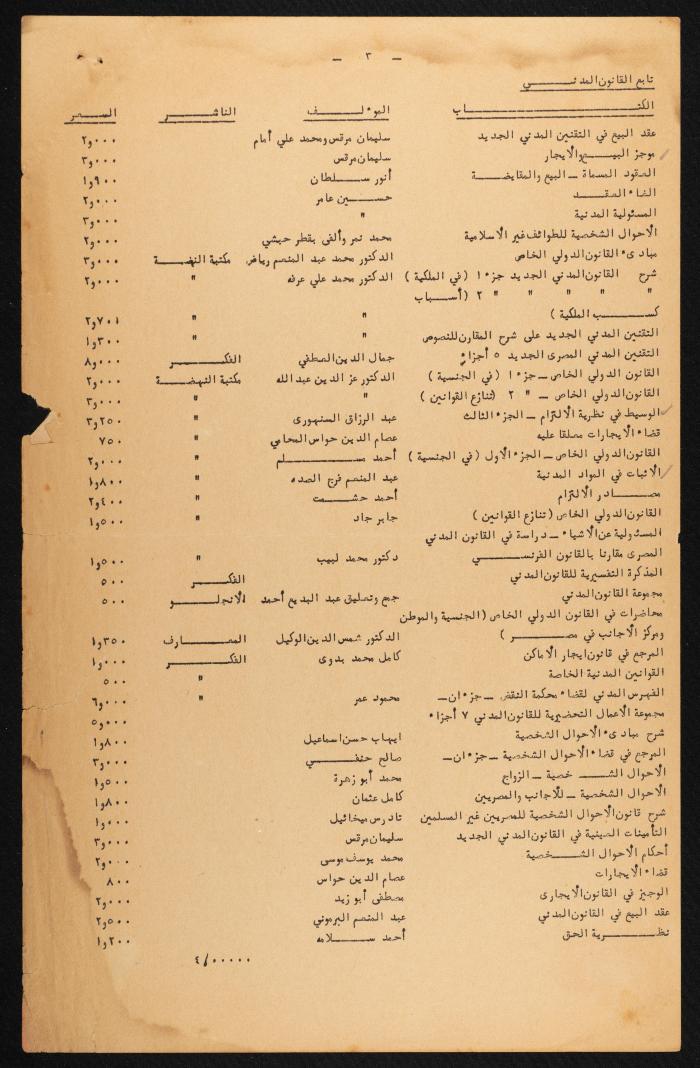 — ٣ —
تابع القانون المدنـــي
الكتـــــــــاب المؤلـــف الناشـــر السـعـر
عقد البيع في التقنين المدني الجديد سليمان مرقس ومحمد علي أمام ٢٫٠٠٠
موجز البيـــع والايجار سليمان مرقس ٣٫٠٠٠
العقود المسماة ــ البيع والمقايضـــة أنور ســـلطان ١٫٩٠٠
حســـين عامر ٢٫٠٠٠
المسئولية المدنية " ٣٫٠٠٠
الاحوال الشخصية للطوائف غير الاسلامية محمد نمر وألفى بقطر حبشي ٢٫٠٠٠
مبادىء القانون الدولي الخاص الدكتور محمد عبد المنعم رياض مكتبة النهضـــة ٣٫٠٠٠
شرح القانون المدني الجديد جزء ١ (في الملكية) الدكتور محمد علي عرفه " ٢٫٠٠٠
" " " " " ٢ (أســباب
كســـب الملكية) " " ٢٫٧٠١
التقنين المدني الجديد على شرح المقارن للنصوص " " ١٫٣٠٠
التقنين المدني المصرى الجديد ٥ أجزاء جمال الدين العطفي الفكـــر ٨٫٠٠٠
القانون الدولي الخاص ــ جزء ١ (في الجنسية) الدكتور عز الدين عبد الله مكتبة النهضـــة ٢٫٠٠٠
القانون الدولي الخاص ــ " ٢ (تنازع القوانين) " " ٣٫٠٠٠
الوسيط في نظرية الالتزام ــ الجزء الثالث عبد الرزاق السنهورى " ٣٫٢٥٠
قضاء الايجارات معلقا عليه عصام الدين حواس المحامي " ٧٥٠
القانون الدولي الخاص ــ الجزء الاول (في الجنسية) أحمد مســـلم " ٢٫٠٠٠
الاثبات في المواد المدنية عبد المنعم فرج الصده " ١٫٨٠٠
مصـــادر الالتزام أحمد حشـــمت " ٢٫٤٠٠
القانون الدولي الخاص (تنازع القوانين) جابر جاد " ١٫٥٠٠
المسئولية عن الاشياء ــ دراسة في القانون المدني
المصرى مقارنا بالقانون الفرنســـي دكتور محمد لبيب " ١٫٥٠٠
المذكرة التفسيرية للقانون المدني الفكـــر ٥٠٠
مجموعة القانون المدني جمع وتعليق عبد البديع أحمد الانجلـــو ٥٠٠
محاضرات في القانون الدولي الخاص (الجنسية والموطن
ومركز الاجانب في مصـــر) الدكتور شمس الدين الوكيل المعـــارف ١٫٣٥٠
المرجع في قانون ايجار الاماكن كامل محمد بدوى الفكـــر ١٫٠٠٠
القوانين المدنية الخاصة " ٥٠٠
الفهرس المدني لقضاء محكمة النقض ــ جزءان ــ محمود عمر " ٦٫٠٠٠
مجموعة الاعمال التحضيرية للقانون المدني ٧ أجزاء ٥٫٠٠٠
شرح مبادىء الاحوال الشخصية ايهاب حسن اسماعيل ١٫٨٠٠
المرجع في قضاء الاحوال الشخصية ــ جزءان ــ صالح حنفـــي ٣٫٠٠٠
الاحوال الشـــخصية ــ الزواج محمد أبو زهرة ١٫٥٠٠
الاحوال الشخصية ــ للاجانب والمصريين كامل عثمان ١٫٨٠٠
شرح قانون الاحوال الشخصية للمصريين غير المسلمين تادرس ميخائيل ١٫٠٠٠
التأمينات العينية في القانون المدني الجديد سليمان مرقس ٣٫٠٠٠
أحكام الاحوال الشـــخصية محمد يوسف موسى ٢٫٠٠٠
قضاء الايجارات عصام الدين حواس ٨٠٠
الوجيز في القانون الايجارى مصطفى أبو زيد ٢٫٠٠٠
عقد البيع في القانون المدني عبد المنعم البرموني ٢٫٥٠٠
نظـــرية الحق أحمد ســـلامه ١٫٢٠٠